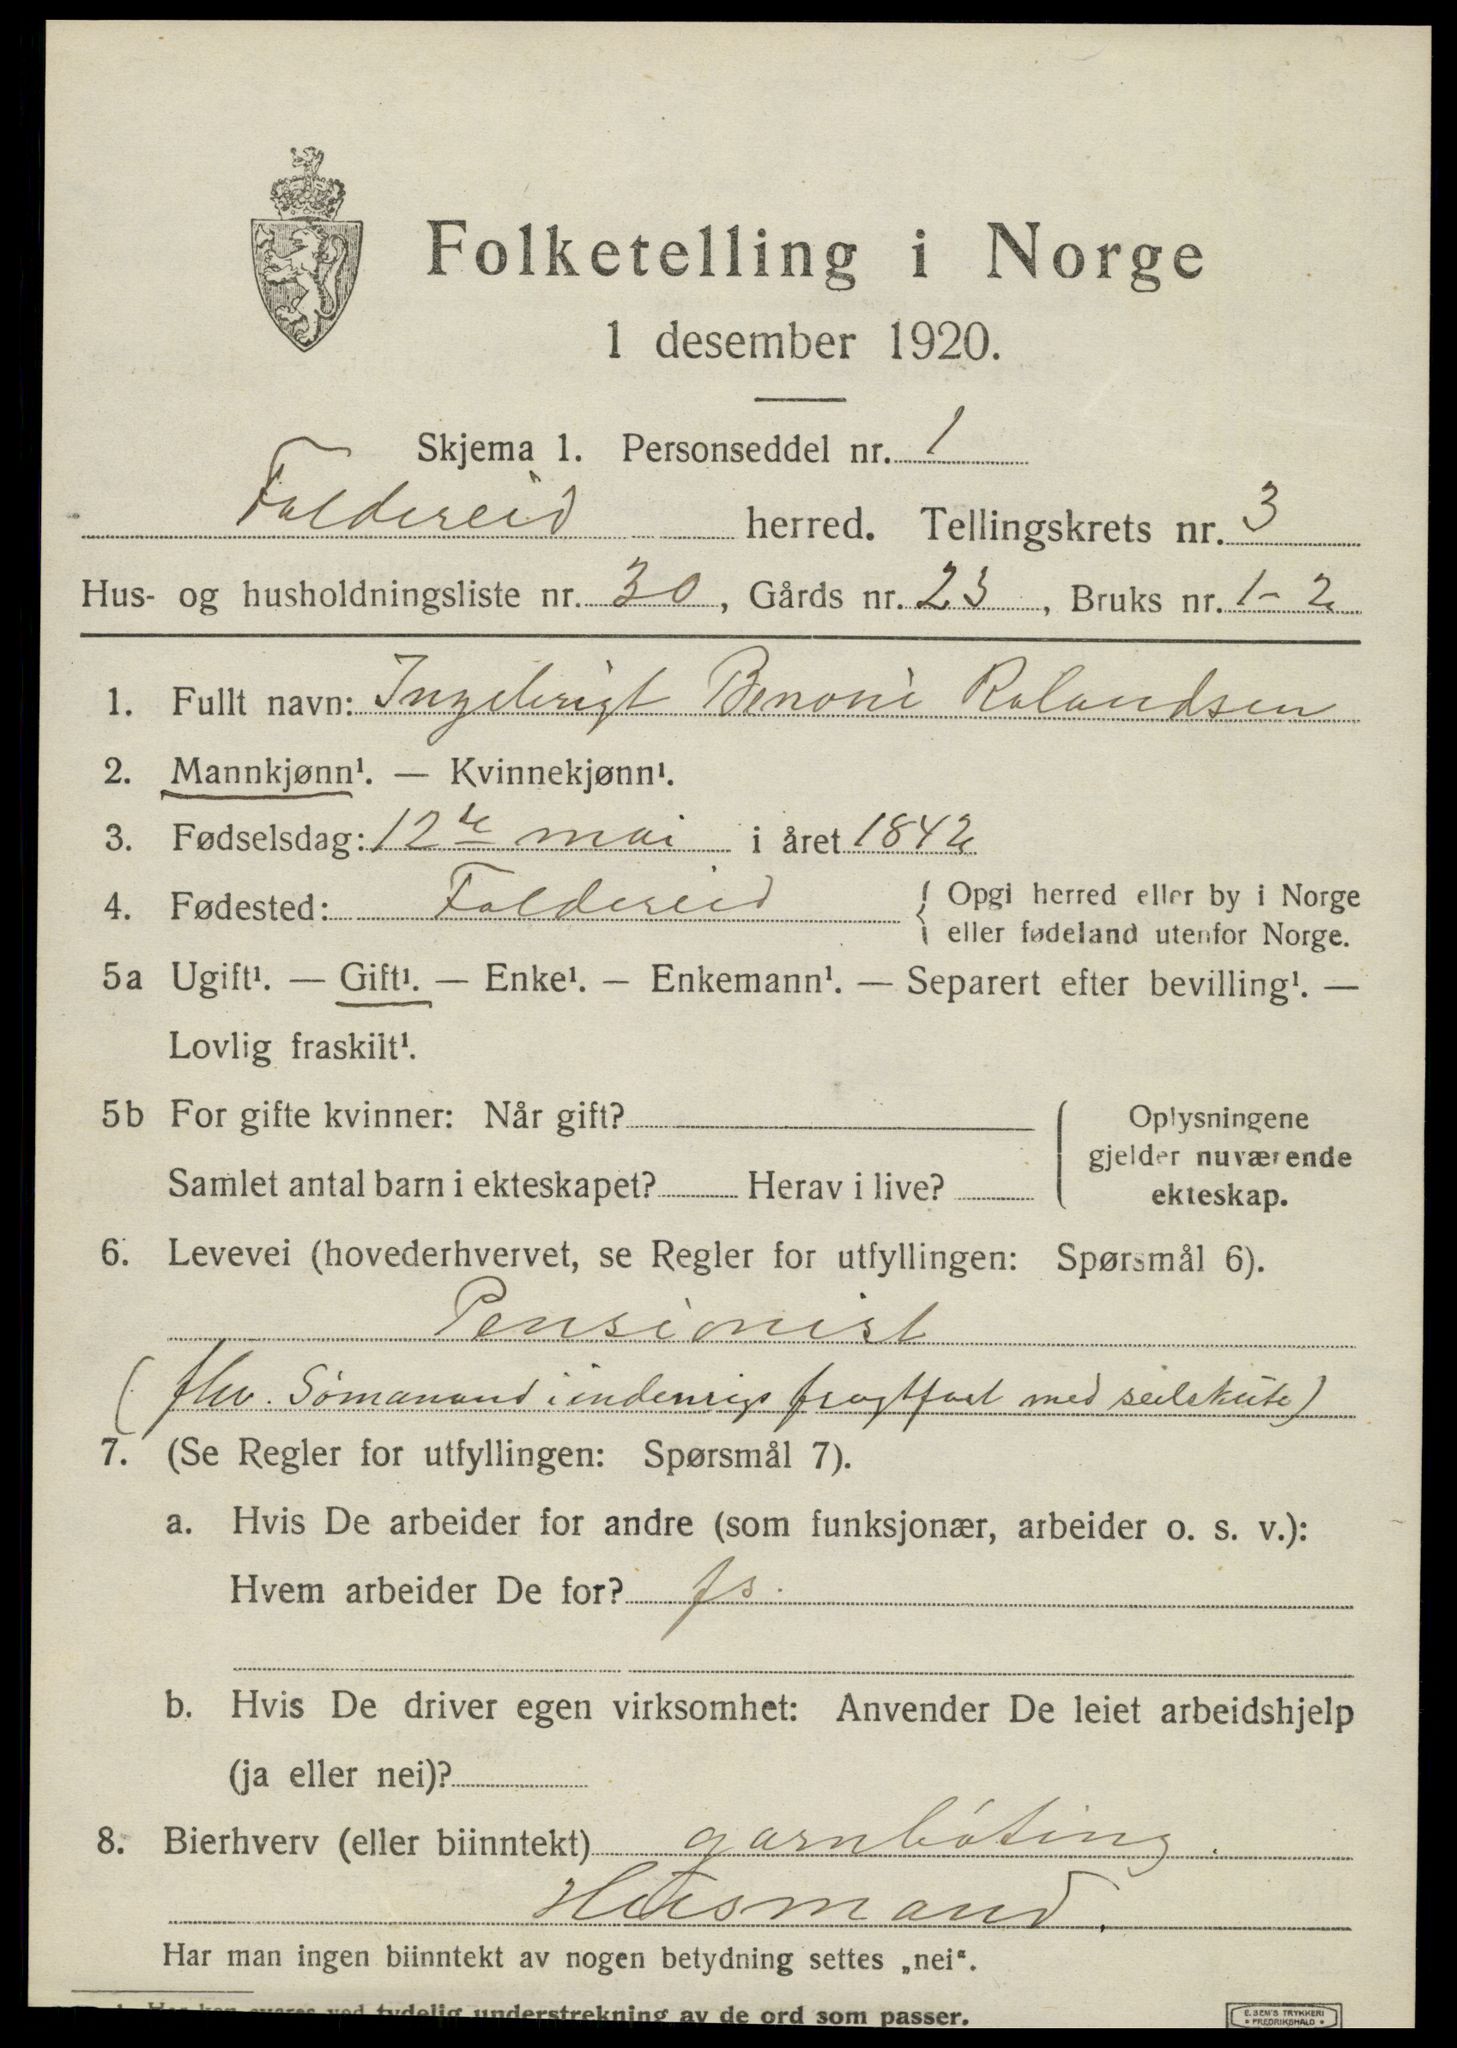 Folketelling i Norge
1 desember 1920.
Skjema 1. Personseddel nr. 1
Foldereid herred. Tellingskrets nr. 3
Hus- og husholdningsliste nr. 30, Gårds nr. 23, Bruks nr. 1-2
1. Fullt navn: Ingebrigt Benoni Rolandsen
2. Mannkjønn¹. — Kvinnekjønn¹.
3. Fødselsdag: 12te mai i året 1842
4. Fødested: Foldereid { Opgi herred eller by i Norge
eller fødeland utenfor Norge.
5a Ugift¹. — Gift¹. — Enke¹. — Enkemann¹. — Separert efter bevilling¹. —
Lovlig fraskilt¹.
5b For gifte kvinner: Når gift?
Samlet antal barn i ekteskapet? Herav i live?
Oplysningene
gjelder nuværende
ekteskap.
6. Levevei (hovederhvervet, se Regler for utfyllingen: Spørsmål 6).
Pensionist
(fhv. Sømanand i indenrigs fragtfart med seilskute)
7. (Se Regler for utfyllingen: Spørsmål 7).
a. Hvis De arbeider for andre (som funksjonær, arbeider o. s. v.):
Hvem arbeider De for? fs.
b. Hvis De driver egen virksomhet: Anvender De leiet arbeidshjelp
(ja eller nei)?
8. Bierhverv (eller biinntekt) garnbøting.
Husmand.
Har man ingen biinntekt av nogen betydning settes „nei“.
1 Her kan svares ved tydelig understrekning av de ord som passer.
E. SEM'S TRYKKERI
• FREDRIKSHALD •